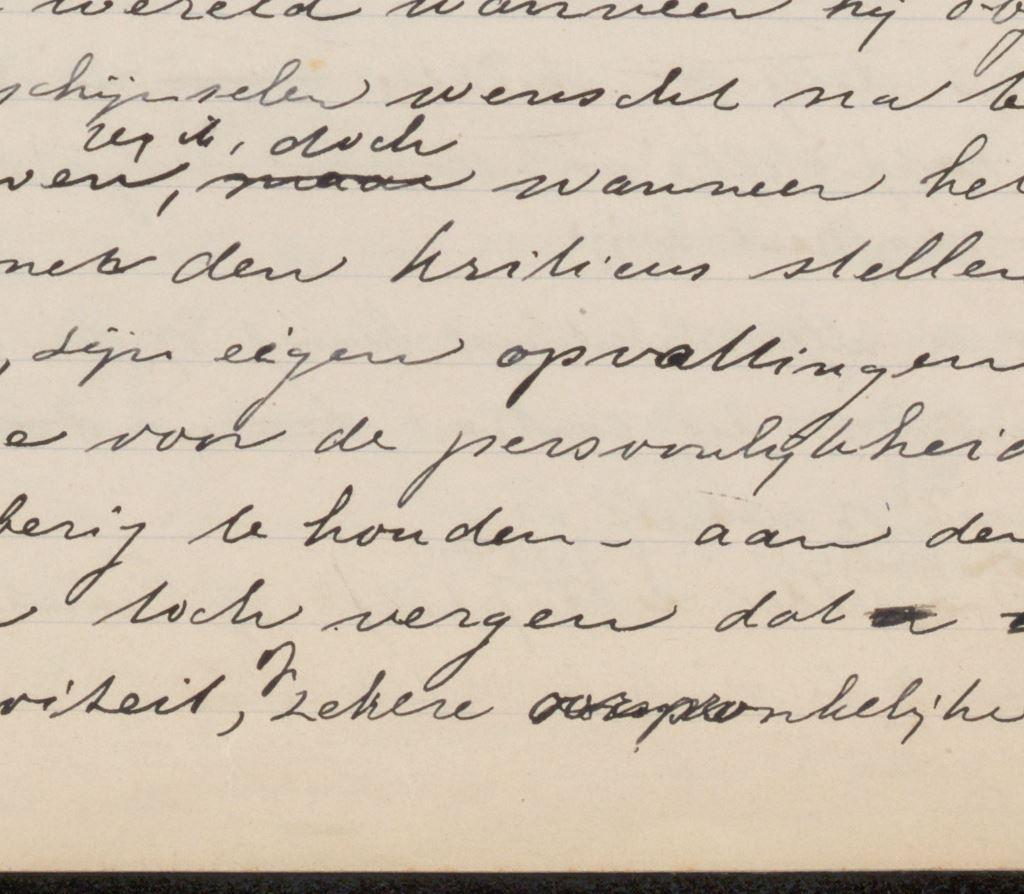 wereld wanneer hij
schijnselen wenscht na te
doch
ven, maar wanneer het
met den kriticus stellen
, zijn eigen opvattingen
e voor de persoonlijkheid
berig te houden - aan den
toch vergen dat
viteit, of zekere oorspronkelijke